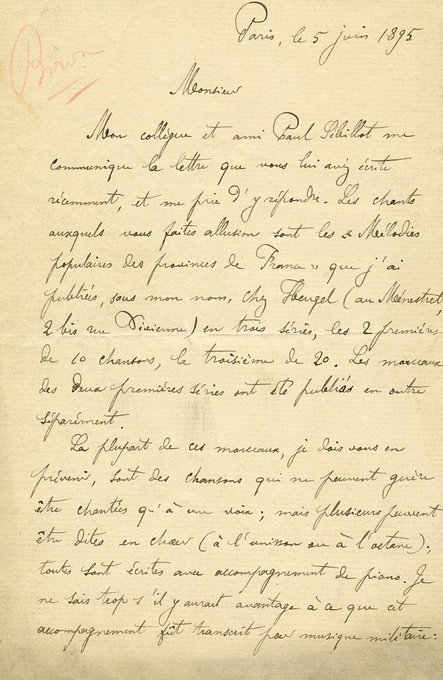 Paris, le 5 juin 1895
Monsieur
Mon collègue et ami Paul Sébillot me
communique la lettre que vous lui aviez écrite
récemment, et me prie d'y répondre. Les chants
auxquels vous faites allusion sont les « Mélodies
populaires des provinces de France » que j'ai
publiées, sous mon nom, chez Heugel (au Ménestrel,
2 bis rue Vivienne) en trois séries, les 2 premières
de 10 chansons, la troisième de 20. Les morceaux
des deux premières séries ont été publiés en outre
séparément.
La plupart de ces morceaux, je dois vous en
prévenir, sont des chansons qui ne peuvent guère
être chantées qu'à une voix ; mais plusieurs peuvent
être dites en chœur (à l'unisson ou à l'octave) ;
toutes sont écrites avec accompagnement de piano. Je
ne sais trop s'il y aurait avantage à ce que cet
accompagnement fût transcrit pour musique militaire :